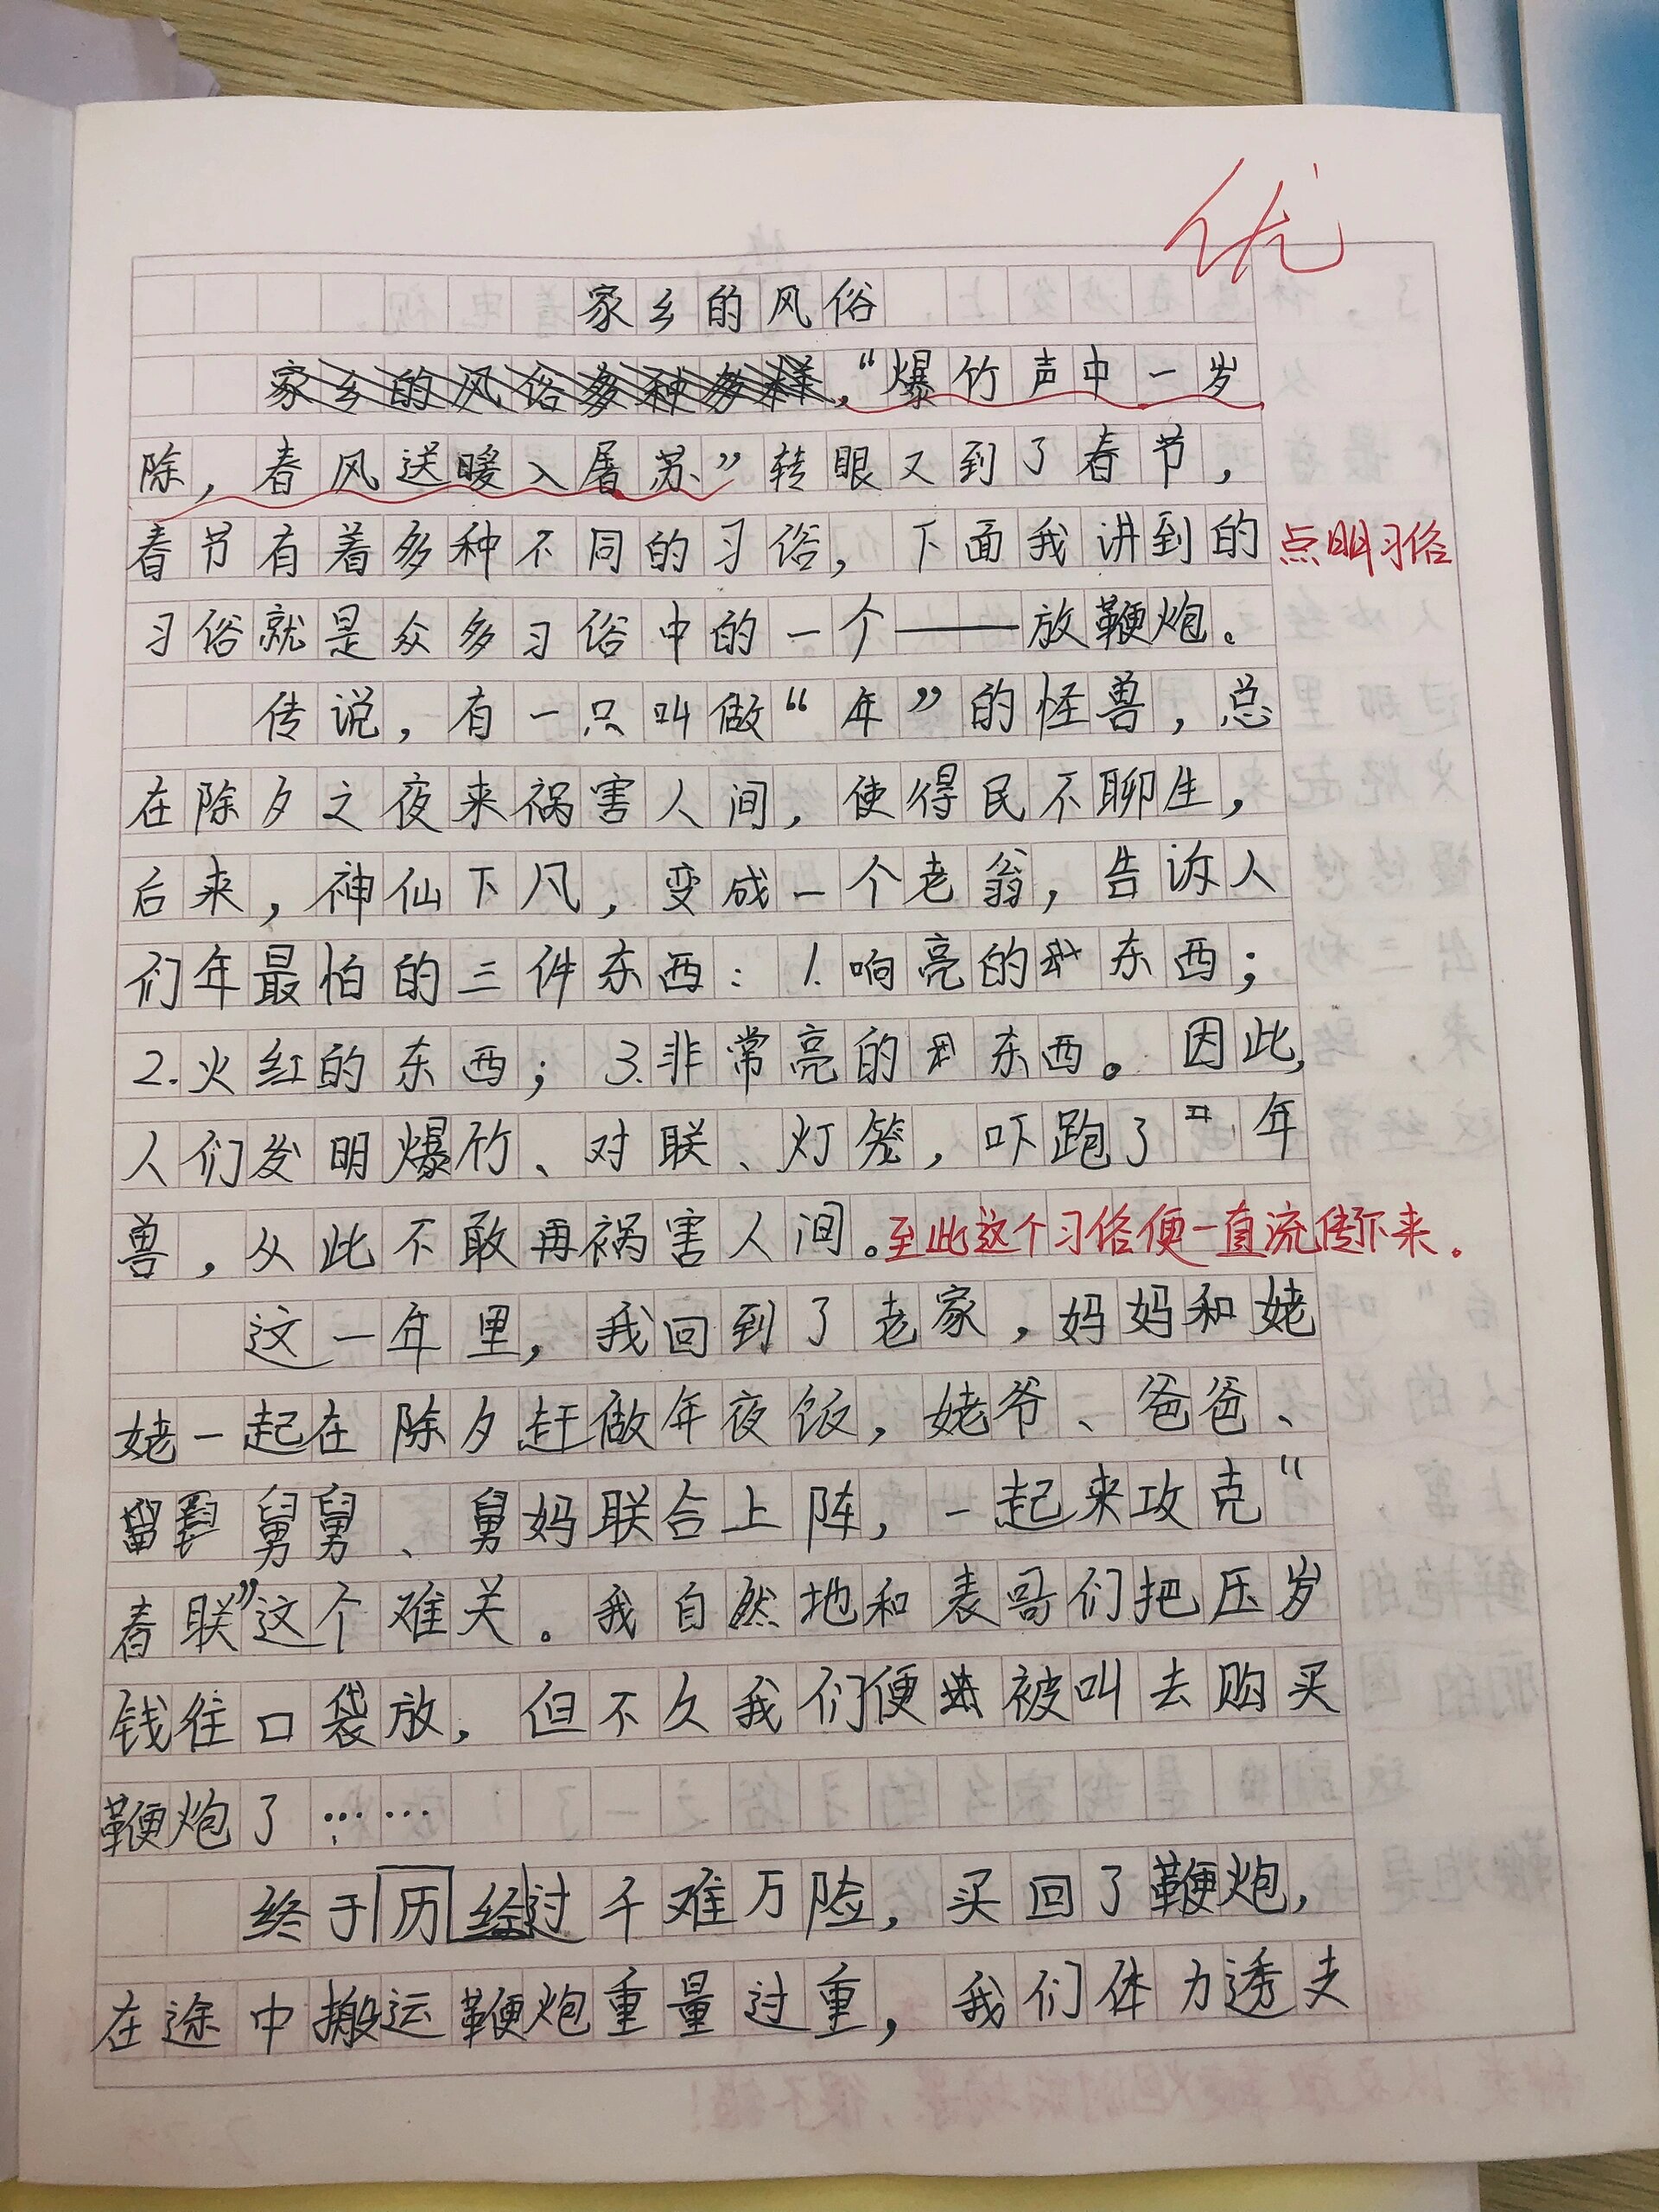 优
家乡的风俗
家乡的风俗多种多样,“爆竹声中一岁
除,春风送暖入屠苏”转眼又到了春节,
春节有着多种不同的习俗,下面我讲到的
点明习俗
习俗就是众多习俗中的一个——放鞭炮。
传说,有一只叫做“年”的怪兽,总
在除夕之夜来祸害人间,使得民不聊生,
后来,神仙下凡,变成一个老翁,告诉人
们年最怕的三件东西:1.响亮的东西;
2.火红的东西;3.非常亮的东西。因此,
人们发明爆竹、对联、灯笼,吓跑了年
兽,从此不敢再祸害人间。至此这个习俗便一直流传下来.
这一年里,我回到了老家,妈妈和姥
姥一起在除夕赶做年夜饭,姥爷、爸爸、
舅舅、舅妈联合上阵,一起来攻克“
春联”这个难关。我自然地和表哥们把压岁
钱往口袋放,但不久我们便被叫去购买
鞭炮了……
终于历经过千难万险,买回了鞭炮,
在途中搬运鞭炮重量过重,我们体力透支